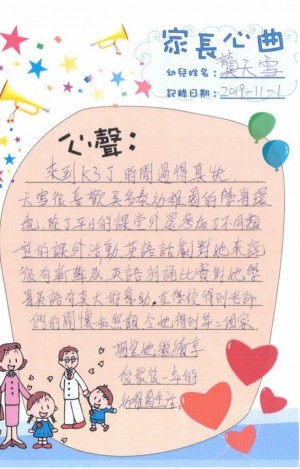 家長心曲
幼兒姓名：黃天雪
記錄日期：2019-11-1
心聲：
來到K3了時間過得真快，
天雪很喜歡 幼稚園的學習環
境，除了平日的課堂外還參加了不同類
型的課外活動，英語話劇對她來說
很有新鮮感，英語朗誦比賽對她學
習英語有莫大的幫助，在學校得到老師
們的關懷和照顧，令她得到第二個家，
期望她繼續享
受最後一年的
幼稚園生活。